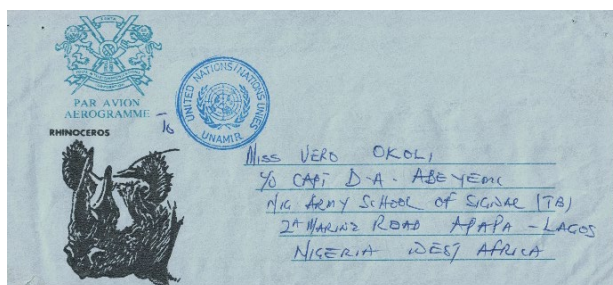 PAR AVION
AEROGRAMME
RHINOCEROS
UNITED NATIONS/NATIONS UNIES
UNAMIR
To
MISS VERO OKOLI
C/O CAPT D-A. ABEYEMI
NIG ARMY SCHOOL OF SIGNAL (TB)
2A MARINE ROAD APAPA - LAGOS
NIGERIA WEST AFRICA